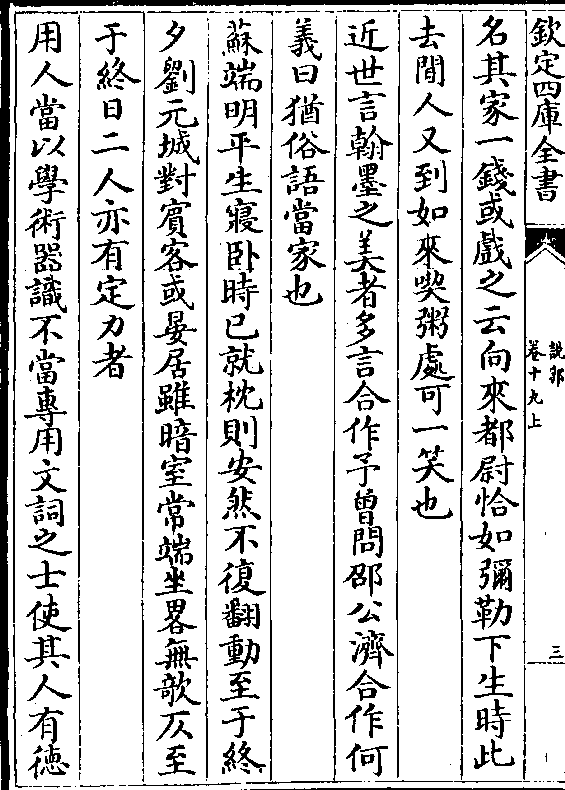 欽定四庫全書
說郛
卷十九上
三
名其家一錢或戲之云向來都尉恰如彌勒下生時此
去間人又到如來喫粥處可一笑也
近世言翰墨之美者多言合作予曾問邵公濟合作何
義曰猶俗語當家也
蘇端明平生寢卧時已就枕則安然不復翻動至于終
夕劉元城對賓客或晏居雖暗室常端坐畧無欹仄至
于終日二人亦有定力者
用人當以學術器識不當專用文詞之士使其人有徳